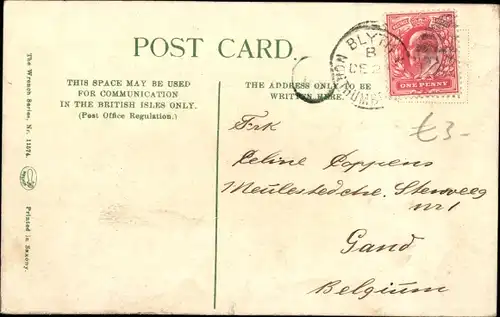 POST CARD.
THIS SPACE MAY BE USED
FOR COMMUNICATION
IN THE BRITISH ISLES ONLY.
(Post Office Regulation.)
THE ADDRESS ONLY TO BE
WRITTEN HERE.
BLYTH
B
DE
ONE PENNY
£3-
Celine Coppens
Meulestedche. Steenweg
nr 1
Gand
Belgium
The Wrench Series, Nr. 11074.
Printed in Saxony.